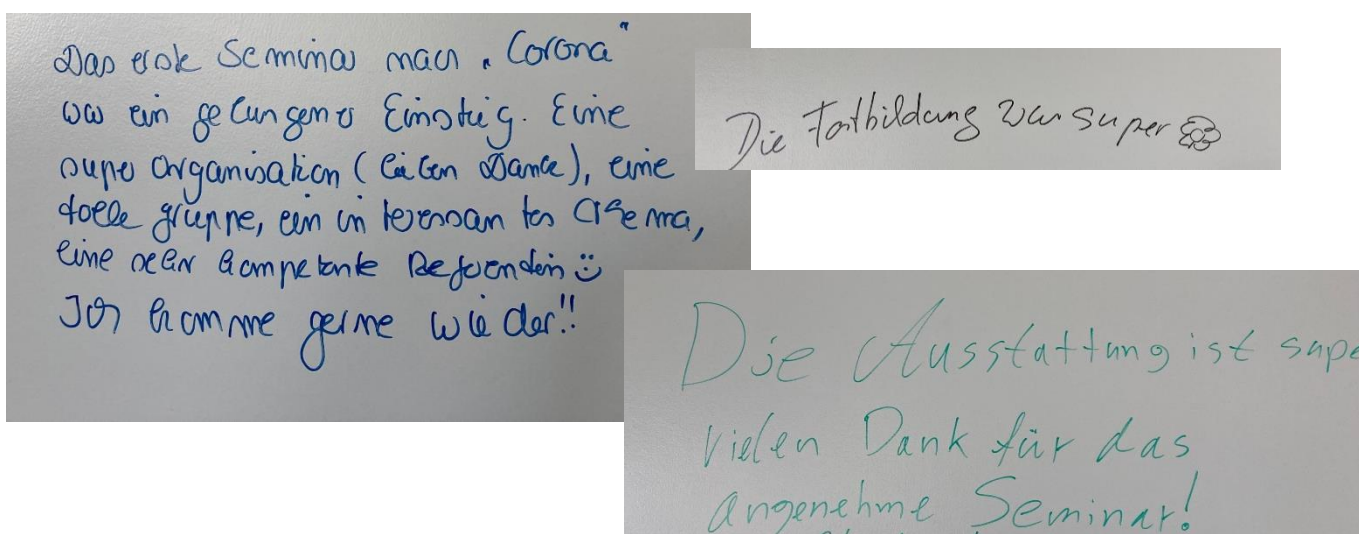 Das erste Seminar nach „Corona“
war ein gelungener Einstieg. Eine
super Organisation (lieben Danke), eine
tolle gruppe, ein interessantes Thema,
eine sehr kompetente Referentin ☺
Ich komme gerne wieder!!
Die Fortbildung war super
Die Ausstattung ist supe
vielen Dank für das
angenehme Seminar!